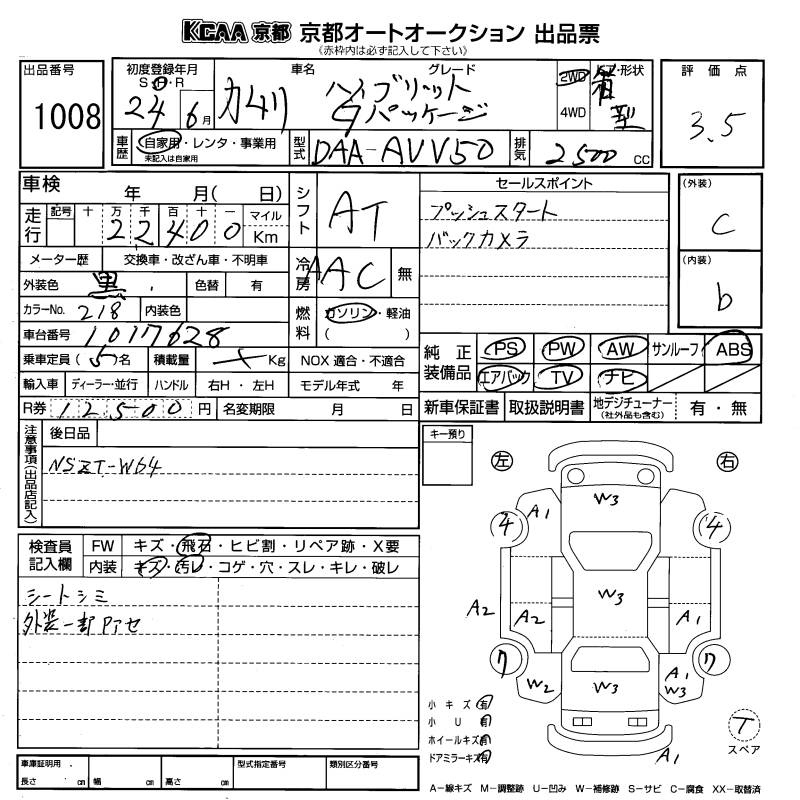 KCAA 京都 京都オートオークション 出品票
《赤枠内は必ず記入して下さい》
出品番号
1008
初度登録年月
S・H・R
24 6月
車名 グレード
カムリ ハイブリット
Gパッケージ
2WD
4WD
ドア・形状
箱型
評価点
3.5
車歴 自家用・レンタ・事業用
未記入は自家用
型式 DAA-AVV50
排気 2500 CC
車検 年 月( 日)
走行 記号 十 万 千 百 十 一 マイル
22400 Km
メーター歴 交換車・改ざん車・不明車
外装色 黒 色替 有
カラーNo. 218 内装色
車台番号 1017628
乗車定員 (5)名 積載量 Kg NOX 適合・不適合
輸入車 ディーラー・並行 ハンドル 右H・左H モデル年式 年
R券 12500円 名変期限 月 日
シフト AT
冷房 AAC 無
燃料 ガソリン・軽油
( )
セールスポイント
プッシュスタート
バックカメラ
(外装)
C
(内装)
b
純正装備品 PS PW AW サンルーフ ABS
エアバック TV ナビ
新車保証書 取扱説明書 地デジチューナー
(社外品も含む)
有・無
注意事項(出品店記入)
後日品
NSZT-W64
キー預り
検査員記入欄 FW キズ・飛石・ヒビ割・リペア跡・X要
内装 キズ・汚レ・コゲ・穴・スレ・キレ・破レ
シートシミ
外装一部色アセ
左 右
W3
A1
4 4
W3
A2 A2 A1
7 7
W2 W3 A1
W3
A1
小キズ 有
小U 有
ホイールキズ 有
ドアミラーキズ 有
T
スペア
車庫証明用.
長さ cm 幅 cm 高さ cm
型式指定番号 類別区分番号
A-線キズ M-調整跡 U-凹み W-補修跡 S-サビ C-腐食 XX-取替済